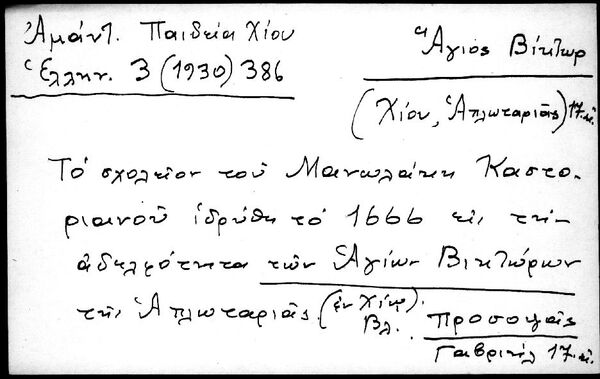 Ἀμάντ. Παιδεία Χίου
Ἑλλην. 3 (1930) 386
Ἅγιος Βίκτωρ
(Χίου, Ἁπλωταριᾶς) 17. αἰ.
Τὸ σχολεῖον τοῦ Μανωλάκη Καστο-
ριανοῦ ἱδρύθη τὸ 1666 εἰς τὴν
ἀδελφότητα τῶν Ἁγίων Βικτώρων
τῆς Ἁπλωταριᾶς (ἐν Χίῳ).
Βλ. Προσοψᾶς
Γαβριήλ 17. αἰ.